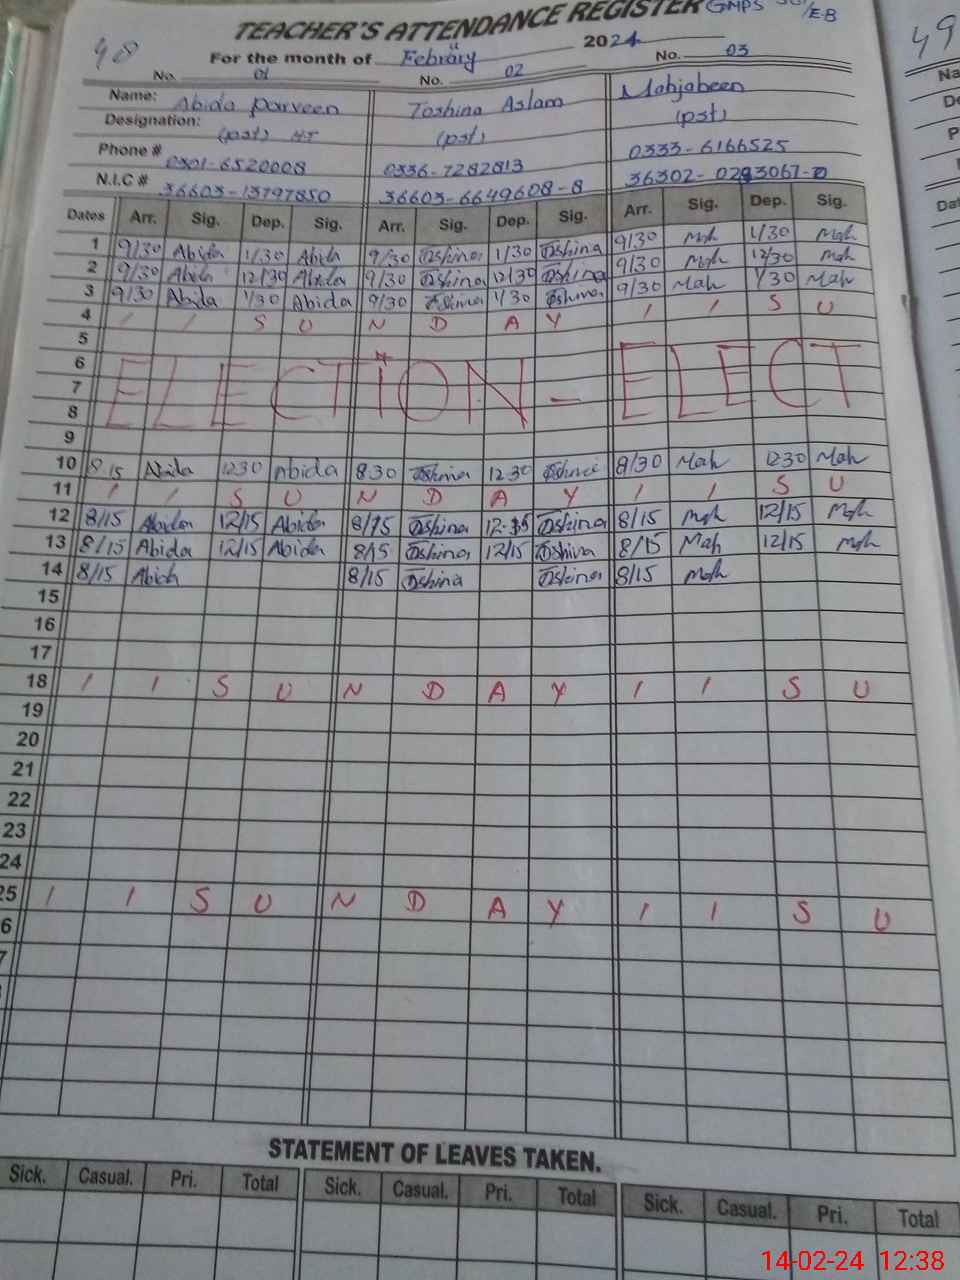 48
TEACHER'S ATTENDANCE REGISTER GMPS
/E-B
For the month of February 2024
No. 01 No. 02 No. 03
Name: Abida Parveen Toshina Aslam Mahjabeen
Designation: (pst) H.T (pst) (pst)
Phone # 0301-6520008 0336-7282813 0333-6166525
N.I.C # 36603-13797850 36603-6649608-8 36302-0293067-0
Dates Arr. Sig. Dep. Sig. Arr. Sig. Dep. Sig. Arr. Sig. Dep. Sig.
1 9/30 Abida 1/30 Abida 9/30 Toshina 1/30 Toshina 9/30 Mah 1/30 Mah
2 9/30 Abida 12/30 Abida 9/30 Toshina 12/30 Toshina 9/30 Mah 12/30 Mah
3 9/30 Abida 1/30 Abida 9/30 Toshina 1/30 Toshina 9/30 Mah 1/30 Mah
4 / / S U N D A Y / / S U
5
6
7 ELECTION - ELECT
8
9
10 8.15 Abida 1230 Abida 8.30 Toshina 12.30 Toshina 8/30 Mah 1230 Mah
11 / / S U N D A Y / / S U
12 8/15 Abida 12/15 Abida 8/15 Toshina 12.15 Toshina 8/15 Mah 12/15 Mah
13 8/15 Abida 12/15 Abida 8/15 Toshina 12/15 Toshina 8/15 Mah 12/15 Mah
14 8/15 Abida 8/15 Toshina Toshina 8/15 Mah
15
16
17
18 / / S U N D A Y / / S U
19
20
21
22
23
24
25 / / S U N D A Y / / S U
6
7
STATEMENT OF LEAVES TAKEN.
Sick. Casual. Pri. Total Sick. Casual. Pri. Total Sick. Casual. Pri. Total
49
Na
De
P
Dat
14-02-24 12:38